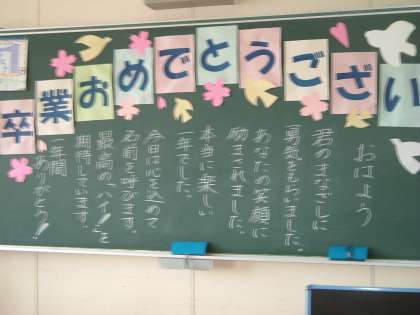 卒業おめでとうござい
おはよう
君のまなざしに
勇気をもらいました。
あなたの笑顔に
励まされました。
本当に楽しい
一年でした。
今日は心を込めて
名前を呼びます。
最高の「ハイ!」を
期待しています。
一年間
ありがとう!